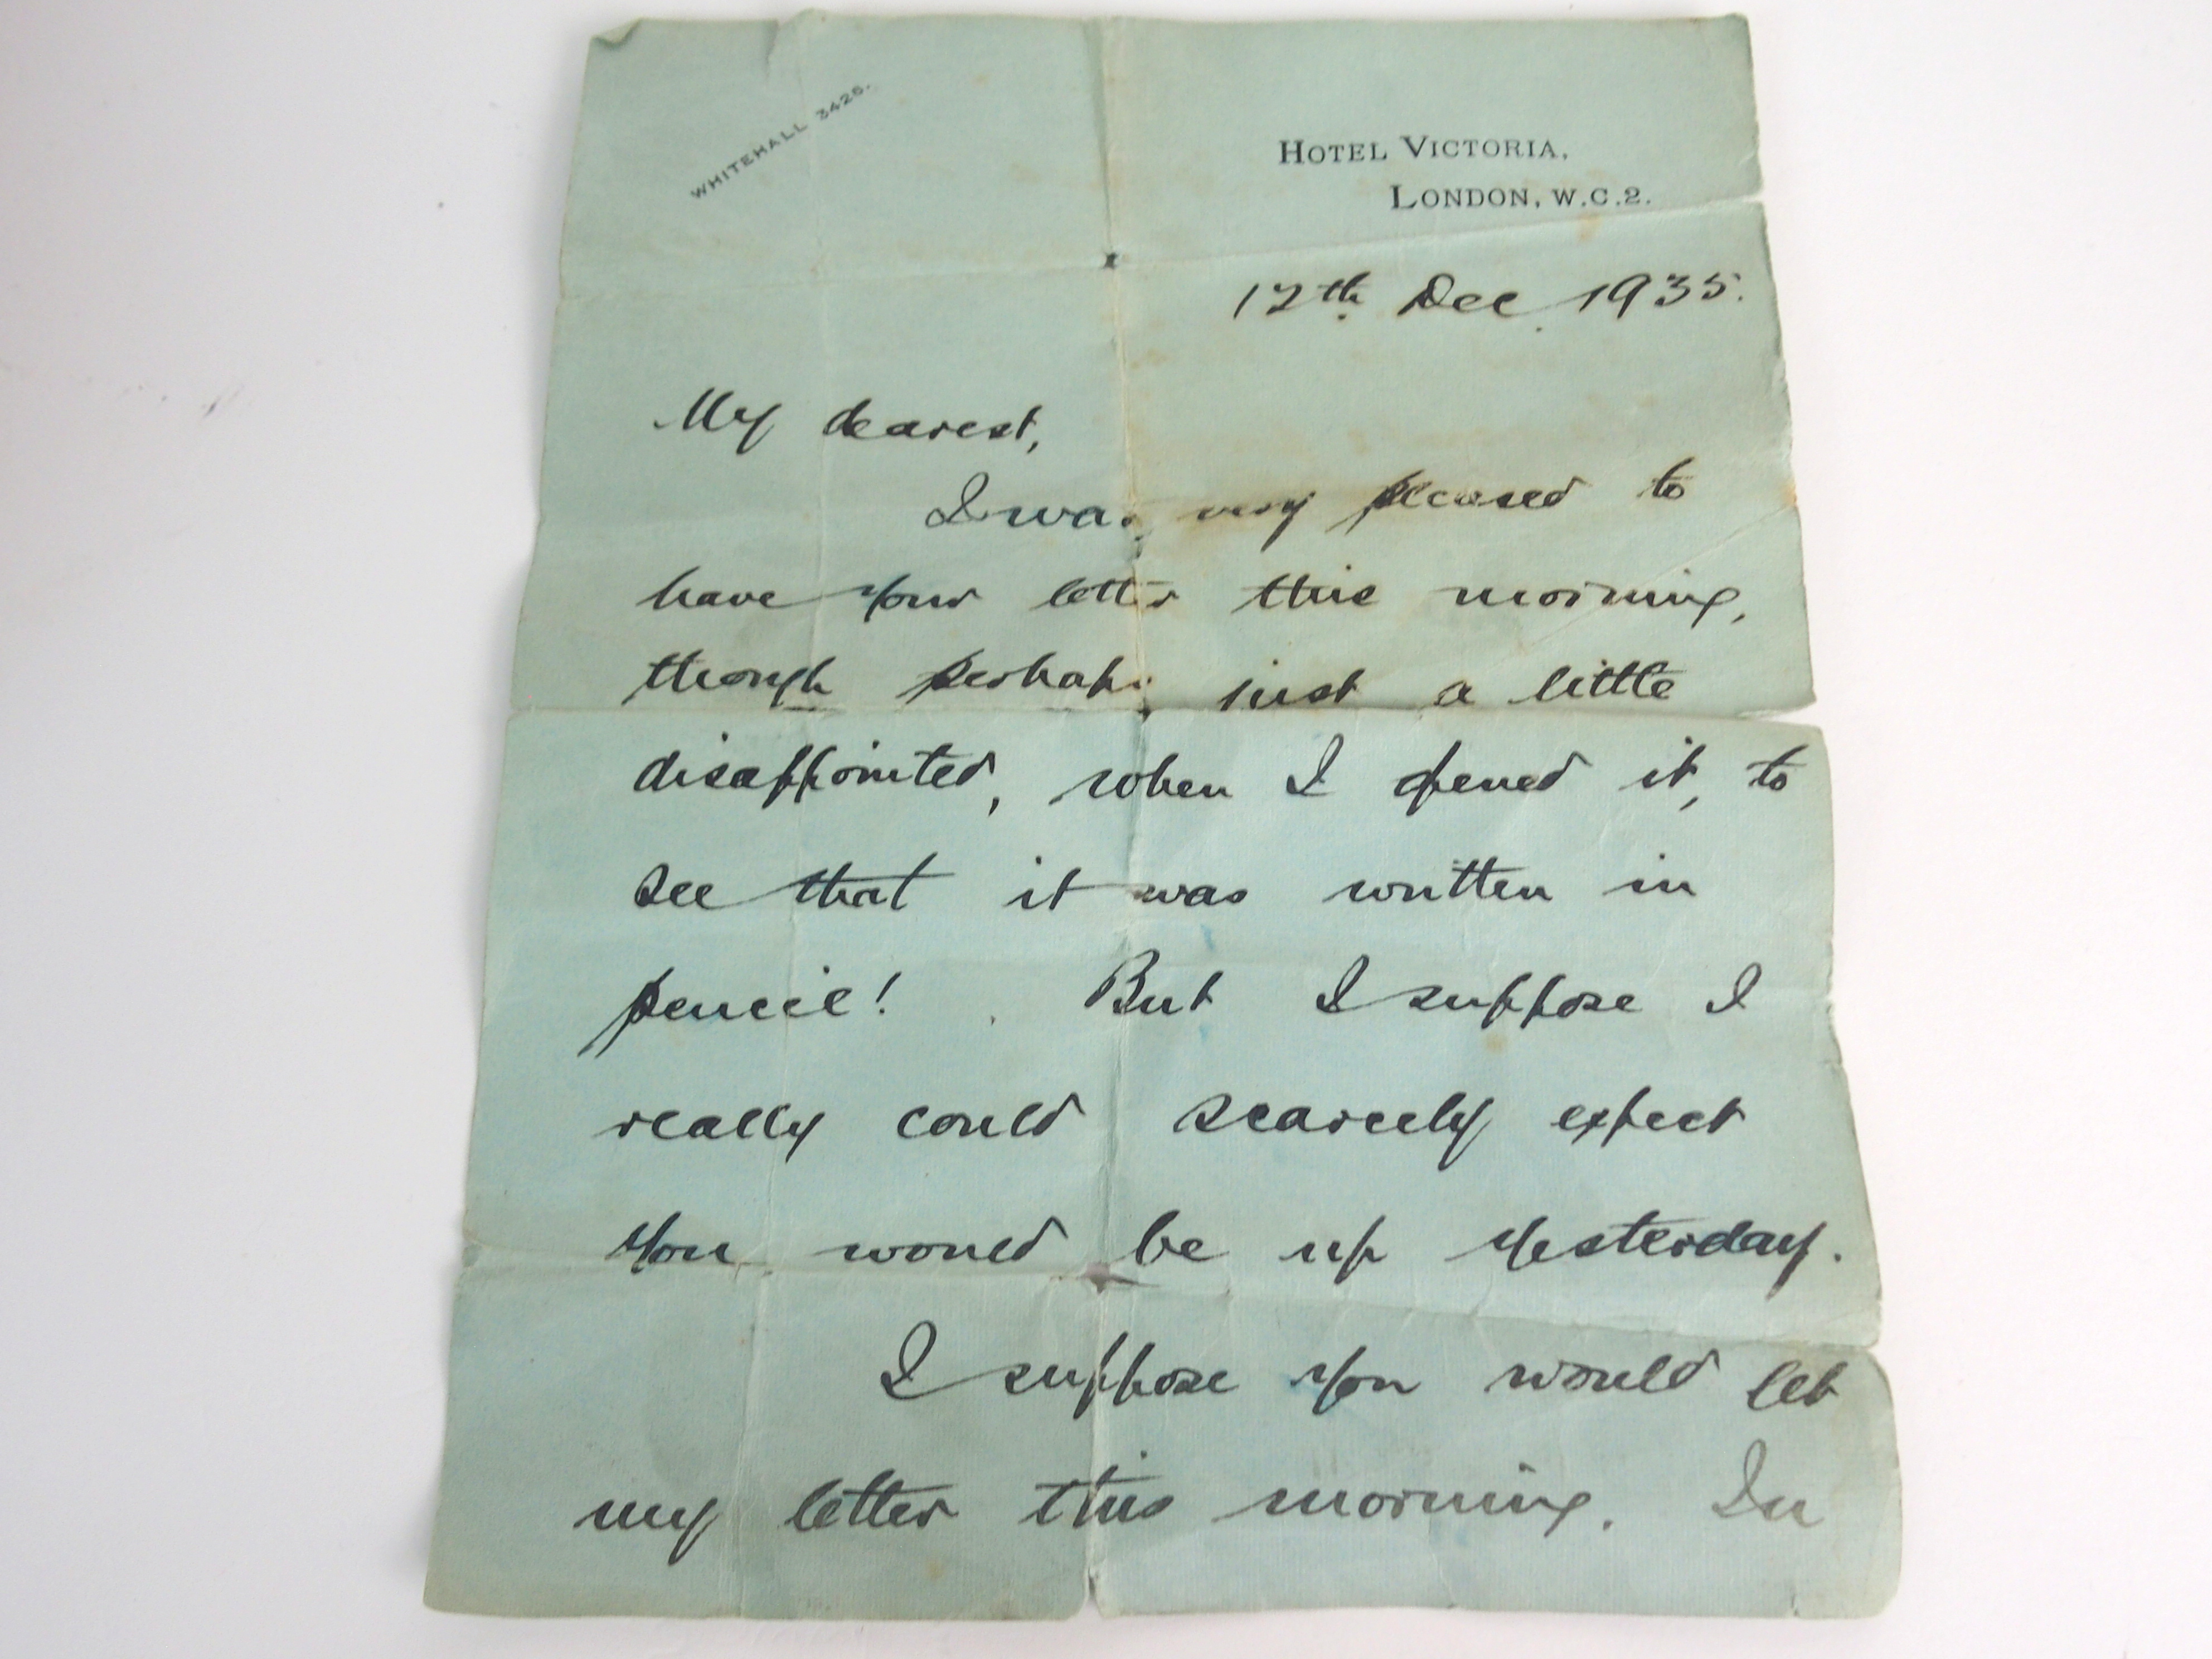 WHITEHALL 3426.
HOTEL VICTORIA,
LONDON, W.C.2.
17th Dec. 1935.
My dearest,
I was very pleased to
have your letter this morning,
though perhaps just a little
disappointed, when I opened it, to
see that it was written in
pencil! But I suppose I
really could scarcely expect
you would be up yesterday.
I suppose you would get
my letter this morning. In